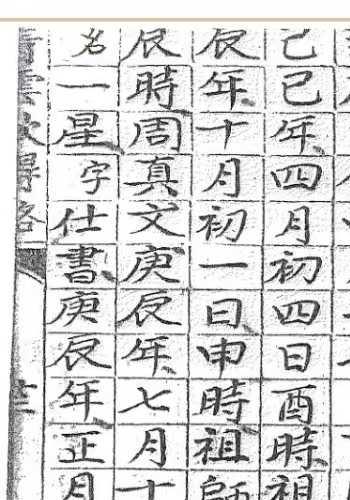 己己年四月初四日酉時祖
辰年十月初一日申時祖
辰時周真文庚辰年七月十
名一星字仕書庚辰年正月